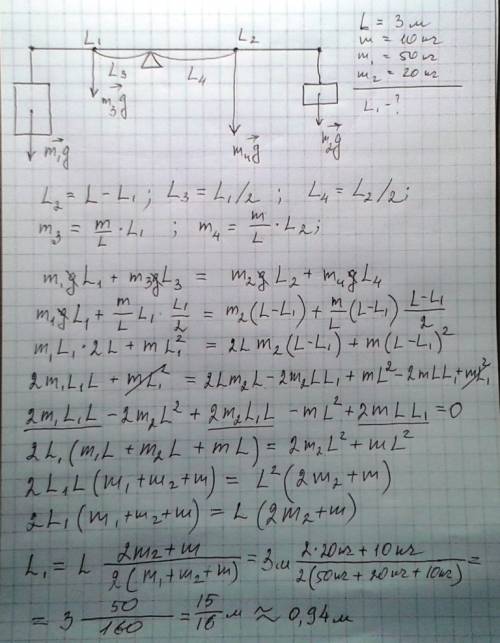 L₁ L₂
L₃ L₄
m₁g m₃g m₄g m₂g
L = 3 м
m = 10 кг
m₁ = 50 кг
m₂ = 20 кг
L₁ - ?
L₂ = L - L₁ ; L₃ = L₁/2 ; L₄ = L₂/2 ;
m₃ = m/L · L₁ ; m₄ = m/L · L₂ ;
m₁gL₁ + m₃gL₃ = m₂gL₂ + m₄gL₄
m₁gL₁ + m/L L₁ · L₁/2 = m₂(L-L₁) + m/L (L-L₁) L-L₁/2
m₁L₁ · 2L + mL₁² = 2L m₂(L-L₁) + m(L-L₁)²
2m₁L₁L + mL₁² = 2Lm₂L - 2m₂LL₁ + mL² - 2mLL₁ + mL₁²
2m₁L₁L - 2m₂L² + 2m₂L₁L - mL² + 2mLL₁ = 0
2L₁(m₁L + m₂L + mL) = 2m₂L² + mL²
2L₁L(m₁ + m₂ + m) = L²(2m₂ + m)
2L₁(m₁ + m₂ + m) = L(2m₂ + m)
L₁ = L 2m₂ + m / 2(m₁ + m₂ + m) = 3м 2·20кг + 10кг / 2(50кг + 20кг + 10кг) =
= 3 50/160 = 15/16 м ≈ 0,94 м